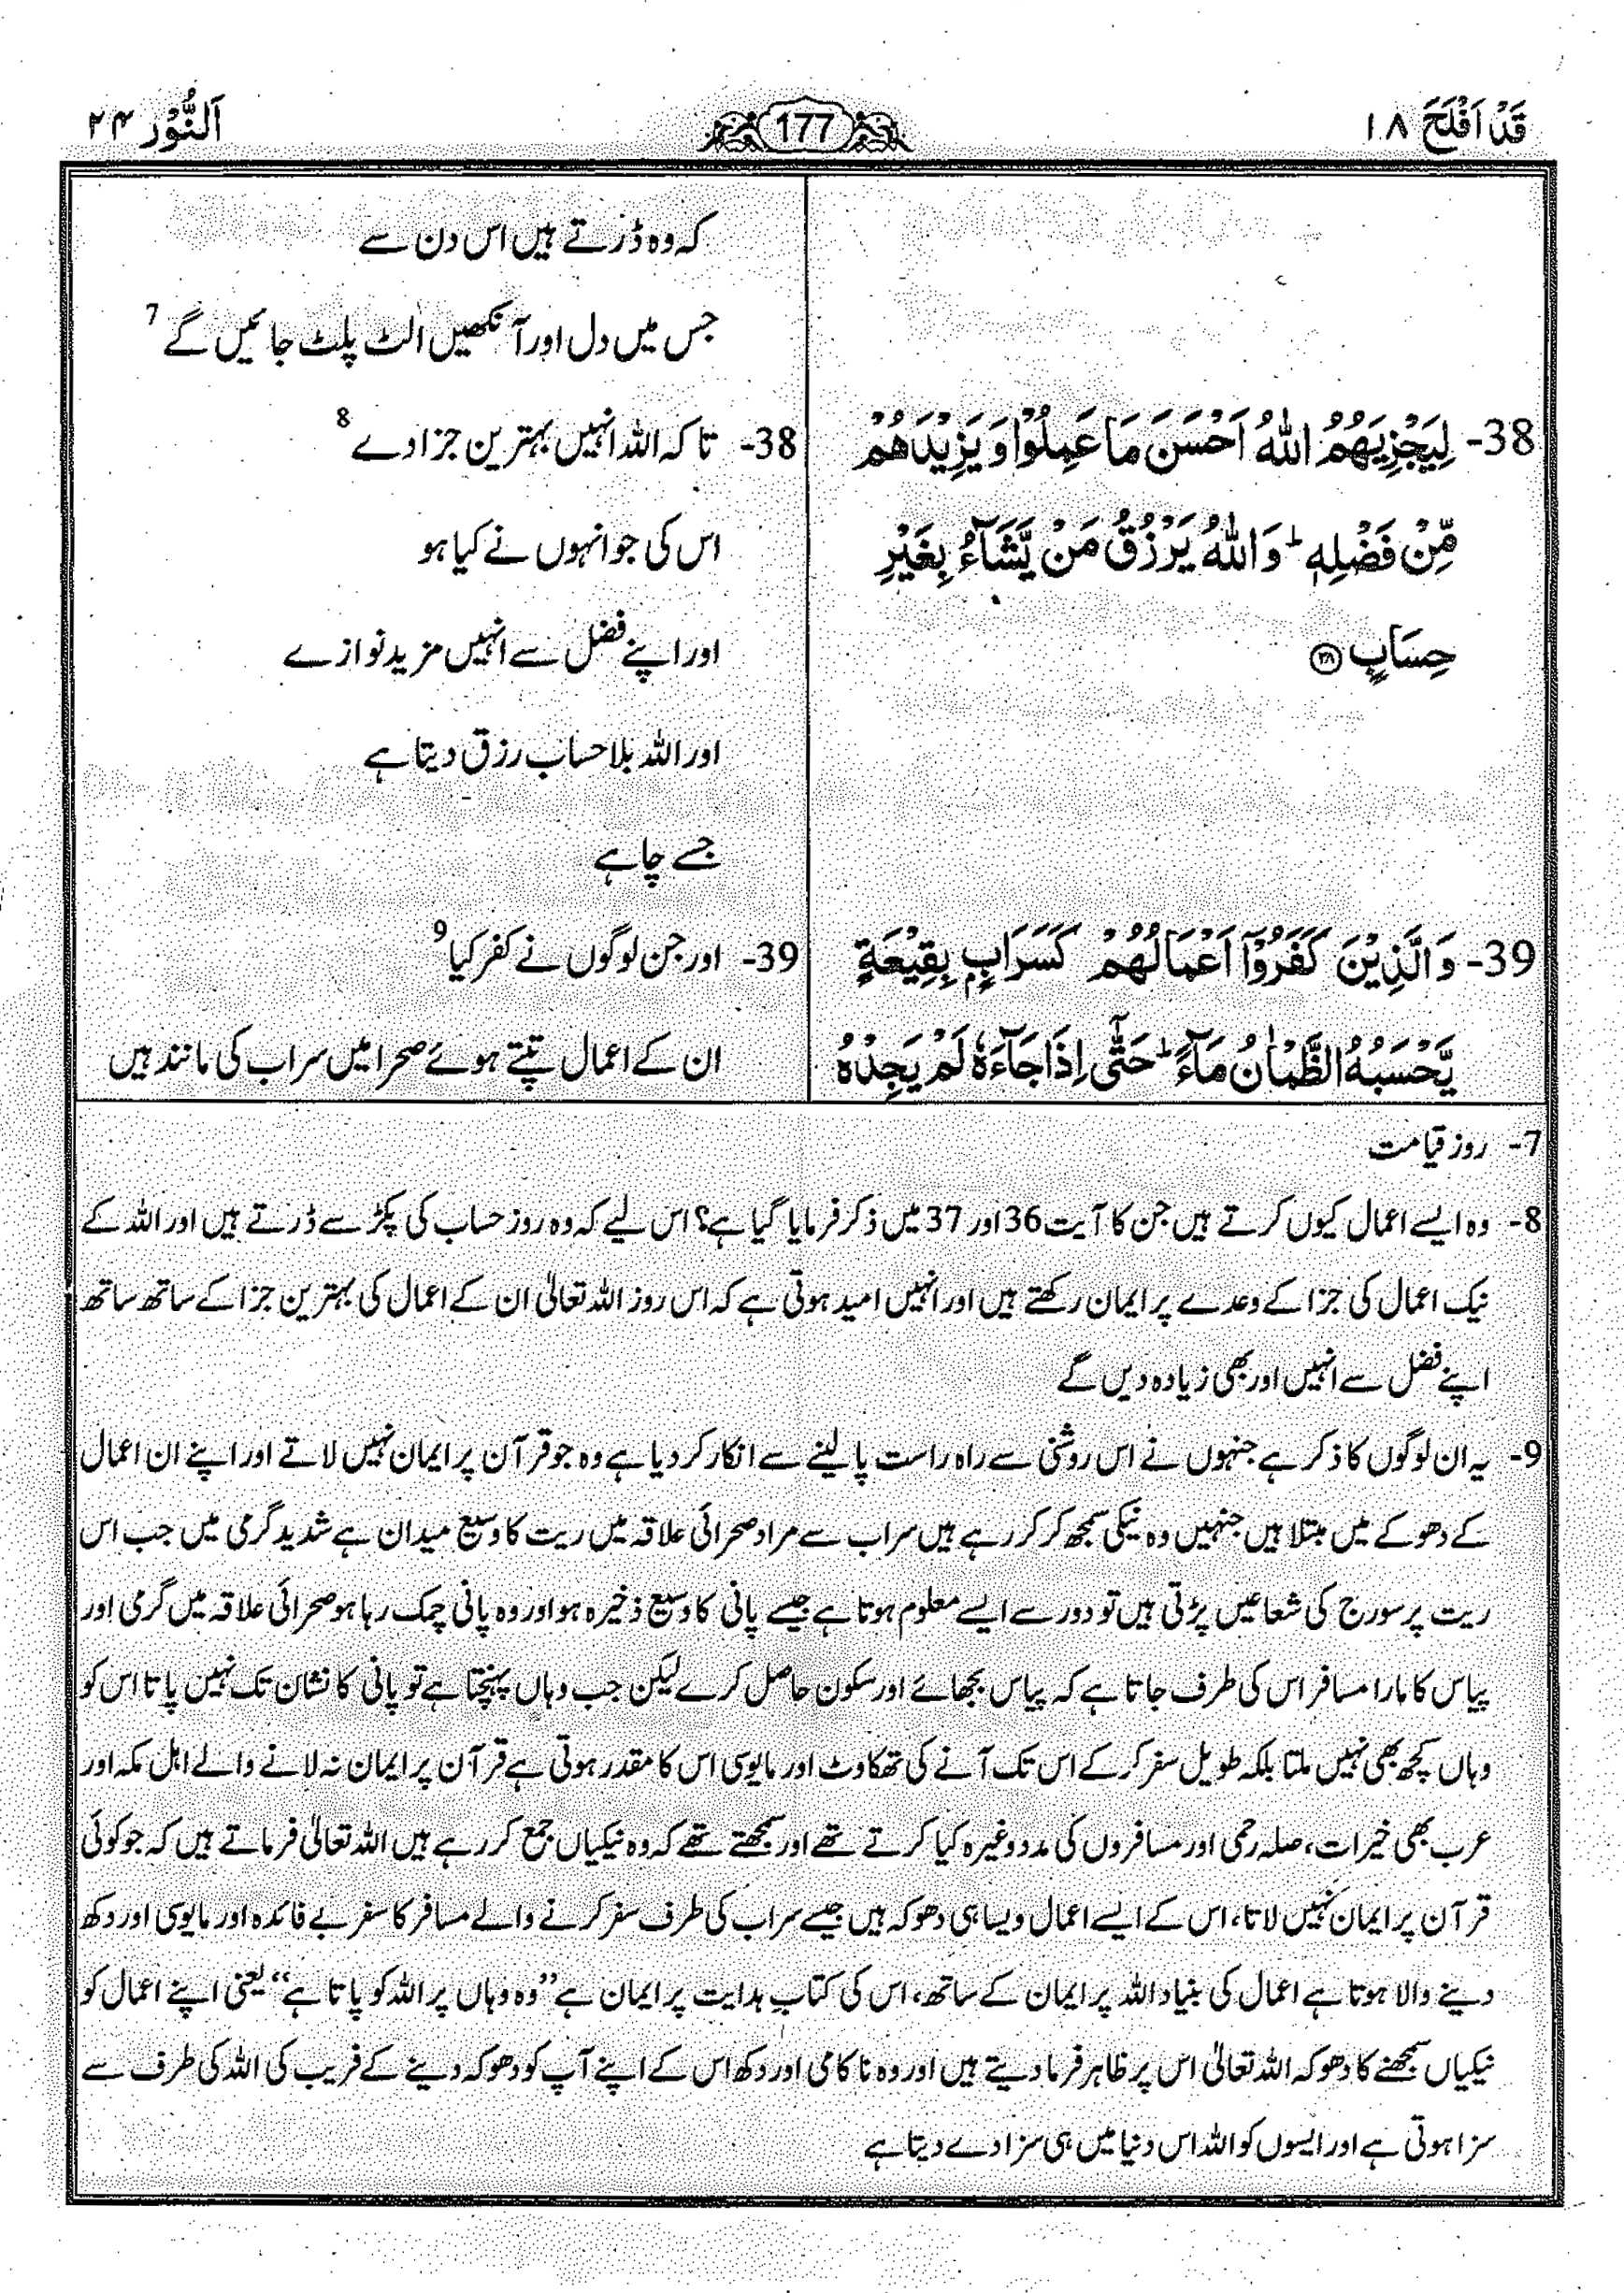 قَدْ اَفْلَحَ ۱۸
177
اَلنُّوْر ۲۴
38- لِيَجْزِيَهُمُ اللّٰهُ اَحْسَنَ مَا عَمِلُوْا وَ يَزِيْدَهُمْ
مِّنْ فَضْلِهٖ ؕ وَ اللّٰهُ يَرْزُقُ مَنْ يَّشَآءُ بِغَيْرِ
حِسَابٍ ۳۸
39- وَ الَّذِيْنَ كَفَرُوْۤا اَعْمَالُهُمْ كَسَرَابٍۭ بِقِيْعَةٍ
يَّحْسَبُهُ الظَّمْاٰنُ مَآءً ؕ حَتّٰۤى اِذَا جَآءَهٗ لَمْ يَجِدْهُ
کہ وہ ڈرتے ہیں اس دن سے
جس میں دل اور آنکھیں الٹ پلٹ جائیں گے 7
38- تاکہ اللہ انہیں بہترین جزا دے 8
اس کی جو انہوں نے کیا ہو
اور اپنے فضل سے انہیں مزید نوازے
اور اللہ بلا حساب رزق دیتا ہے
جسے چاہے
39- اور جن لوگوں نے کفر کیا 9
ان کے اعمال تپتے ہوئے صحرا میں سراب کی مانند ہیں
7- روز قیامت
8- وہ ایسے اعمال کیوں کرتے ہیں جن کا آیت 36 اور 37 میں ذکر فرمایا گیا ہے؟ اس لیے کہ وہ روز حساب کی پکڑ سے ڈرتے ہیں اور اللہ کے
نیک اعمال کی جزا کے وعدے پر ایمان رکھتے ہیں اور انہیں امید ہوتی ہے کہ اس روز اللہ تعالیٰ ان کے اعمال کی بہترین جزا کے ساتھ ساتھ
اپنے فضل سے انہیں اور بھی زیادہ دیں گے
9- یہ ان لوگوں کا ذکر ہے جنہوں نے اس روشنی سے راہ راست پا لینے سے انکار کر دیا ہے وہ جو قرآن پر ایمان نہیں لاتے اور اپنے ان اعمال
کے دھوکے میں مبتلا ہیں جنہیں وہ نیکی سمجھ کر کر رہے ہیں سراب سے مراد صحرائی علاقہ میں ریت کا وسیع میدان ہے شدید گرمی میں جب اس
ریت پر سورج کی شعاعیں پڑتی ہیں تو دور سے ایسے معلوم ہوتا ہے جیسے پانی کا وسیع ذخیرہ ہو اور وہ پانی چمک رہا ہو صحرائی علاقہ میں گرمی اور
پیاس کا مارا مسافر اس کی طرف جاتا ہے کہ پیاس بجھائے اور سکون حاصل کرے لیکن جب وہاں پہنچتا ہے تو پانی کا نشان تک نہیں پاتا اس کو
وہاں کچھ بھی نہیں ملتا بلکہ طویل سفر کر کے اس تک آنے کی تھکاوٹ اور مایوسی اس کا مقدر ہوتی ہے قرآن پر ایمان نہ لانے والے اہل مکہ اور
عرب بھی خیرات، صلہ رحمی اور مسافروں کی مدد وغیرہ کیا کرتے تھے اور سمجھتے تھے کہ وہ نیکیاں جمع کر رہے ہیں اللہ تعالیٰ فرماتے ہیں کہ جو کوئی
قرآن پر ایمان نہیں لاتا، اس کے ایسے اعمال ویسا ہی دھوکہ ہیں جیسے سراب کی طرف سفر کرنے والے مسافر کا سفر بے فائدہ اور مایوسی اور دکھ
دینے والا ہوتا ہے اعمال کی بنیاد اللہ پر ایمان کے ساتھ، اس کی کتابِ ہدایت پر ایمان ہے ”وہ وہاں پر اللہ کو پاتا ہے“ یعنی اپنے اعمال کو
نیکیاں سمجھنے کا دھوکہ اللہ تعالیٰ اس پر ظاہر فرما دیتے ہیں اور وہ ناکامی اور دکھ اس کے اپنے آپ کو دھوکہ دینے کے فریب کی اللہ کی طرف سے
سزا ہوتی ہے اور ایسوں کو اللہ اس دنیا میں ہی سزا دے دیتا ہے